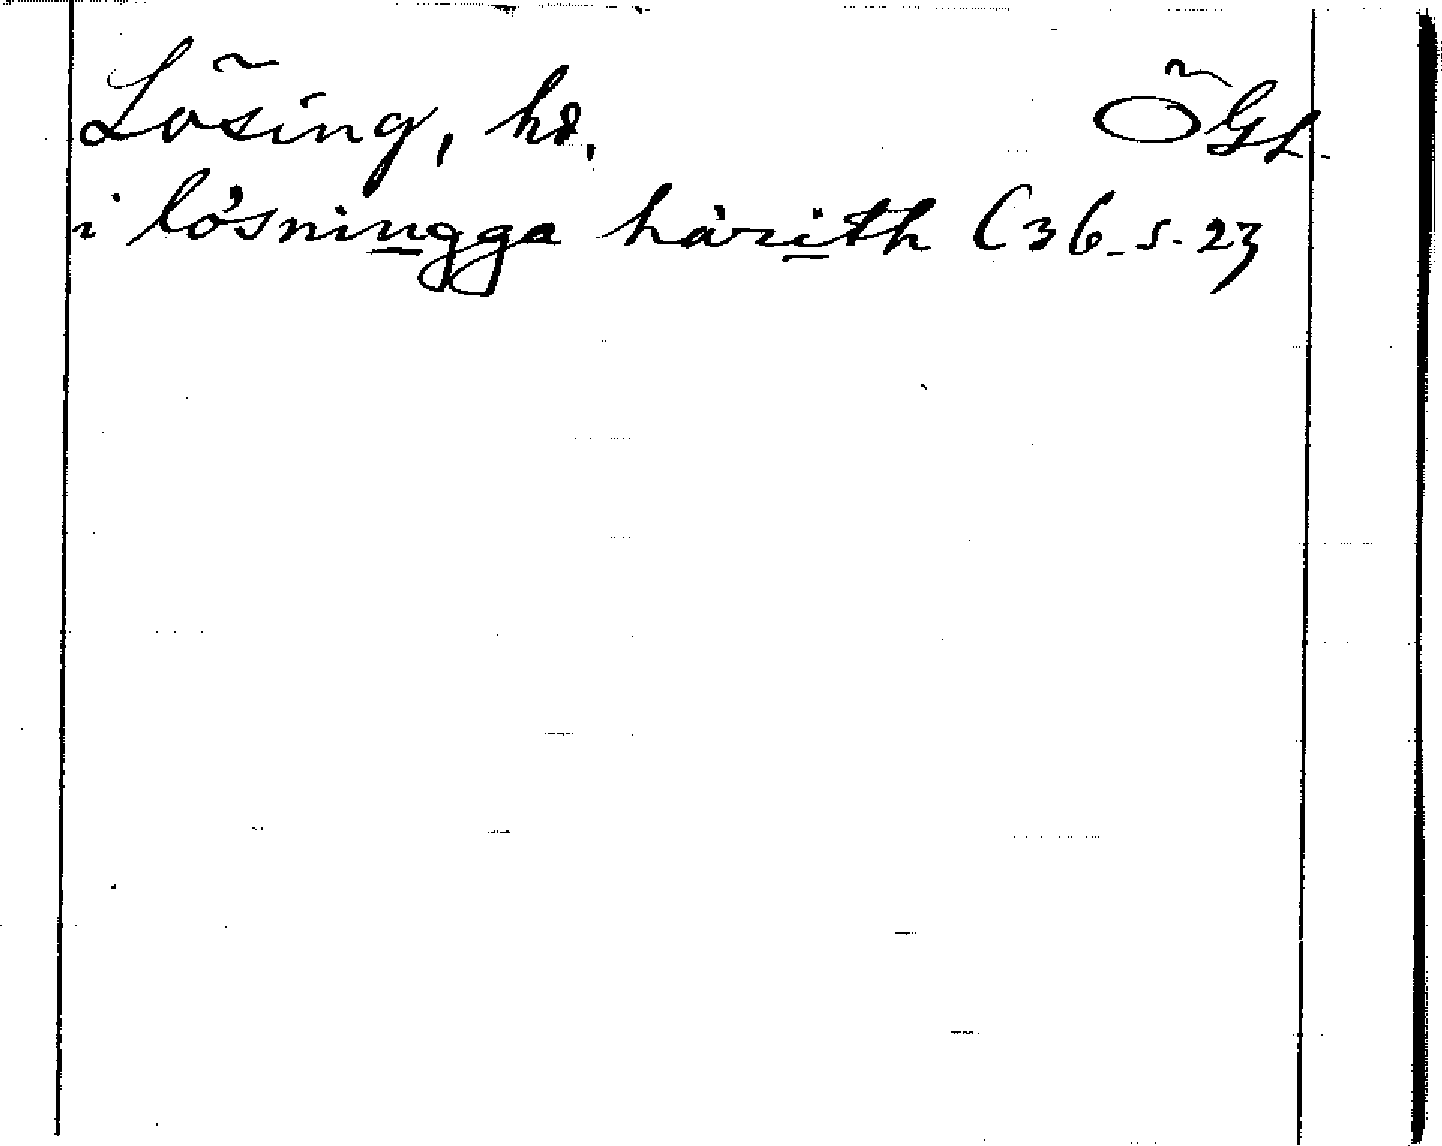 Lösing, hd. ÖGL.
i lösningga härith C 36 s. 23